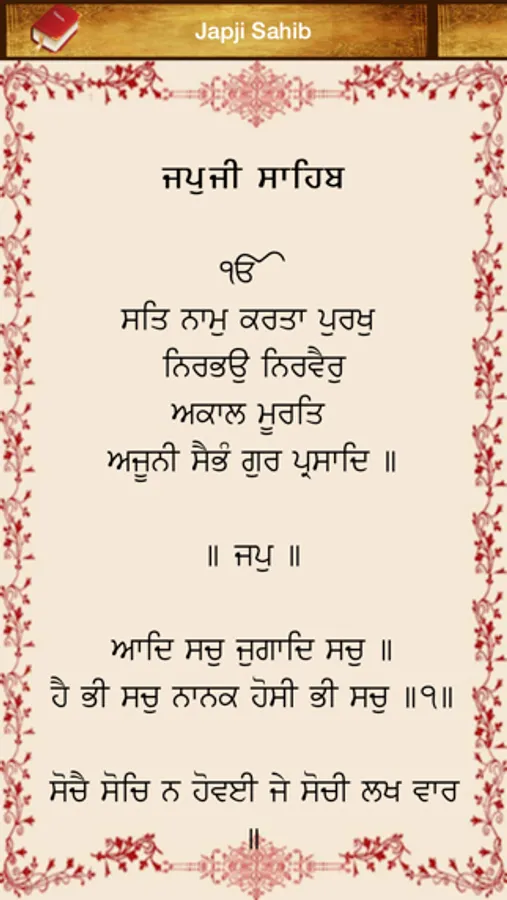 Japji Sahib
ਜਪੁਜੀ ਸਾਹਿਬ
ੴ
ਸਤਿ ਨਾਮੁ ਕਰਤਾ ਪੁਰਖੁ
ਨਿਰਭਉ ਨਿਰਵੈਰੁ
ਅਕਾਲ ਮੂਰਤਿ
ਅਜੂਨੀ ਸੈਭੰ ਗੁਰ ਪ੍ਰਸਾਦਿ ॥
॥ ਜਪੁ ॥
ਆਦਿ ਸਚੁ ਜੁਗਾਦਿ ਸਚੁ ॥
ਹੈ ਭੀ ਸਚੁ ਨਾਨਕ ਹੋਸੀ ਭੀ ਸਚੁ ॥੧॥
ਸੋਚੈ ਸੋਚਿ ਨ ਹੋਵਈ ਜੇ ਸੋਚੀ ਲਖ ਵਾਰ
॥